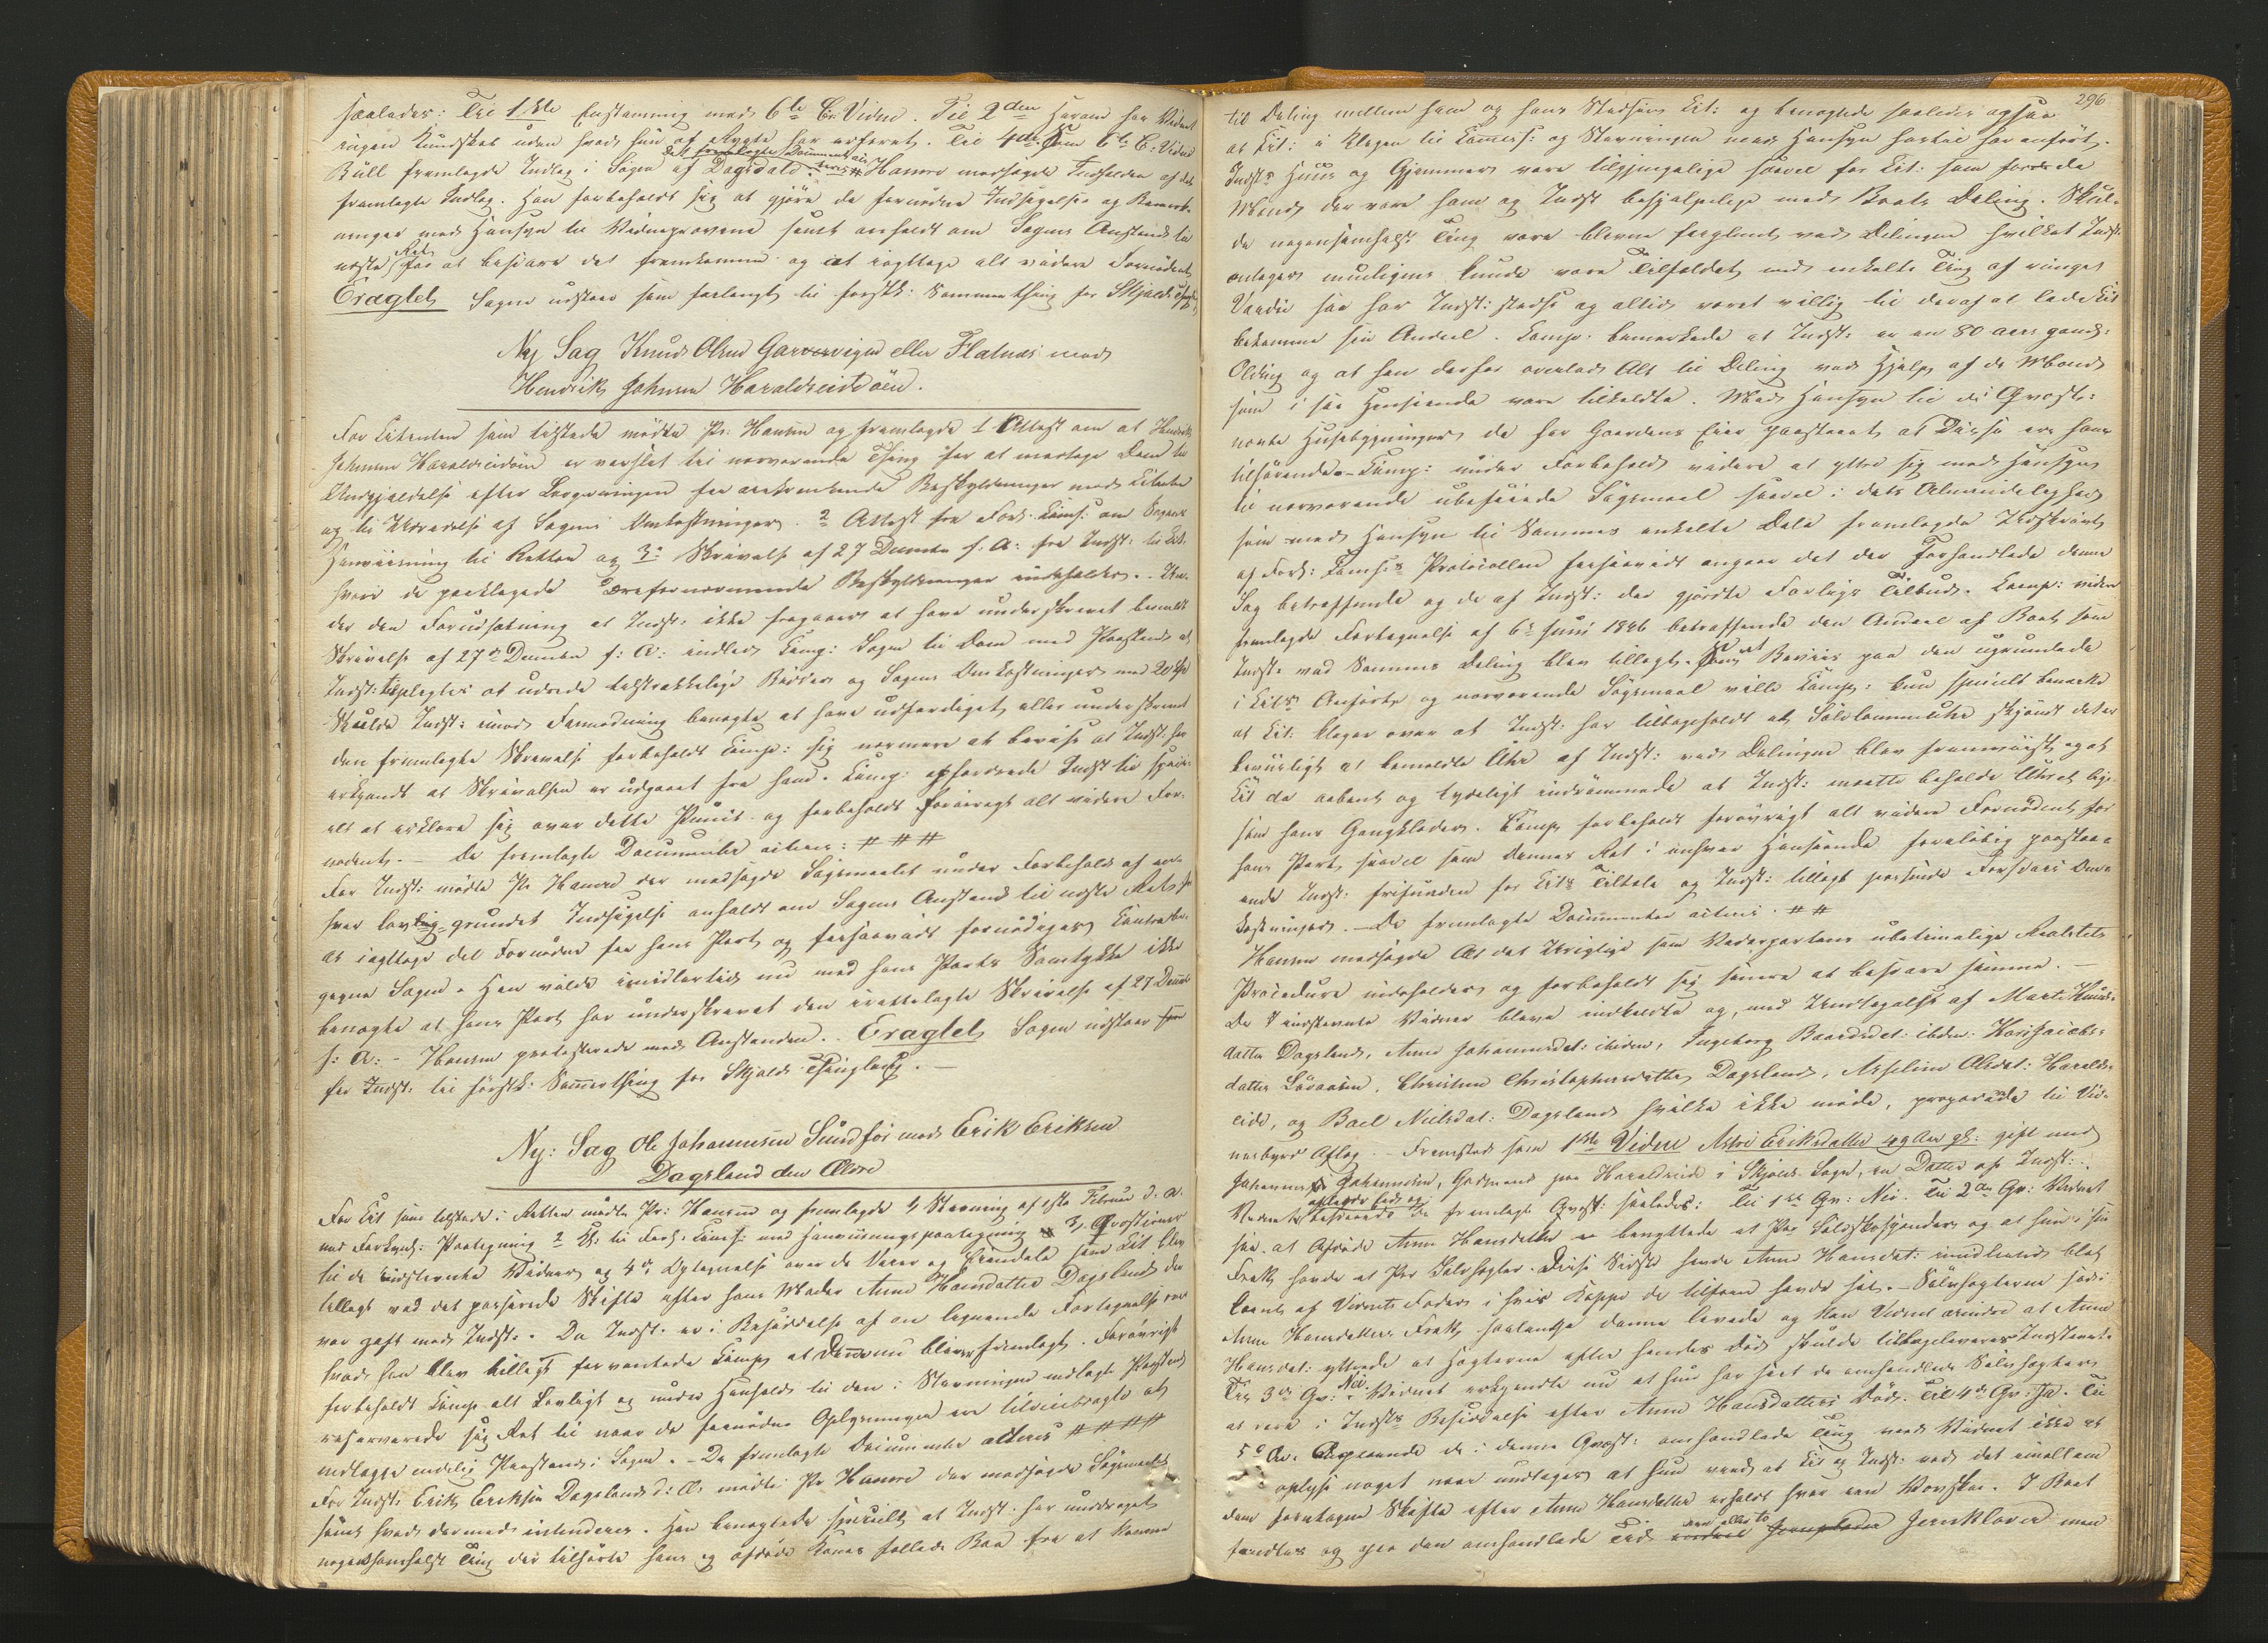 saaledes: Til 1ste Enstemmig med 6te C. Vidne. Til 2den Herom har Vidnet
ingen Kundskab uden hvad hun af Rygte har erfaret. Til 4de Som 6te C. Vidne
Büll fremlagde Indlæg i Sagen af Dags dato. Hansen modsagde Indholdet af det
fremlagte Indlæg. Han forbeholdt sig at gjöre de fornödne Indsigelser og Bemærk-
ninger med Hensyn til Vidneprovene samt anholdt om Sagens Anstand til
næste Ret for at besvare det fremkomne og at iagttage alt videre Fornödent
Eragtet Sagen udstaar som forlangt til förstk: Sommerthing for Skjolds
Ny Sag Knud Olsen Garvervigen eller Flatnæs mod
Hendrik Johnsen Haraldseidöen.
For Citanten som tilstede mödte Pr: Hansen og fremlagde 1 Attest om at Hendrik
Johnsen Haraldseidöen er varslet til nærværende Thing for at modtage Dom til
Undgjældelse efter Lovgivningen for ærekrænkende Beskyldninger mod Citanten
og til Udredelse af Sagens Omkostninger. 2 Attest fra Forl. Comis: om Sagens
Henviisning til Retten og 3 Skrivelse af 27 Decembr f. A: fra Indst: til Cit:
hvori de paaklagede ærefornærmende Beskyldninger indeholdes. Un-
der den Forudsætning at Indst: ikke fragaaer at have underskrevet bemeldte
Skrivelse af 27de Decembr f: A: indlod Comp: Sagen til Dom med Paastand at
Indst: tilpligtes at udrede tilstrækkelige Böder og Sagens Omkostninger med 20 Spd
Skulde Indst: imod Formodning benægte at have udfærdiget eller underskrevet
den fremlagte Skrivelse forbeholdt Comp: sig nærmere at bevise at Indst: har
erkjendt at Skrivelsen er udgaaet fra ham. Comp: opfordrede Indst til speci-
elt at erklære sig over dette Punct og forbeholdt forövrigt alt videre For-
nödent. – De fremlagte Documenter acteres: # # #
For Indst: mödte Pr Hansen der modsagde Sagsmaalet under Forbehold af en-
hver lovlig grundet Indsigelse anholdt om Sagens Anstand til næste Ret for
at iagttage det Fornödne for hans Part og forsaavidt fornödiges Contrabe-
gegne Sagen. Han vilde imidlertid nu med hans Parts Samtykke ikke
benægte at hans Part har underskrevet den irettelagte Skrivelse af 27 Decembr
f: A: – Hansen protesterede mod Anstanden. Eragtet Sagen udstaar
for Indst: til förstk: Sommerthing for Skjolds Thinglaug. –
Ny: Sag Ole Johannesen Sundför mod Erik Eriksen
Dagsland den Ældre
For Cit som tilstede i Retten mödte Pr: Hansen og fremlagde 1, Stevning af 1ste Februar d. A.
med Forkynd: Paategning 2 Kl: til Forl. Comis: med Henvisningspaategning 3, Qvæstioner
til de indstevnte Vidner og 4, Optegnelse over de Varer og Eiendele som Cit blev
tillagt ved det passerede Skifte efter hans Moder Anne Hansdatter Dagsland der
var gift med Indst:. Da Indst: er i Besiddelse af en lignende Fortegnelse over
hvad han blev tillagt forventede Comp: at denne nu bliver fremlagt. Forövrigt
forbeholdt Comp alt Lovligt og under Henhold til den i Stevningen nedlagte Paastand
reserverede sig Ret til naar de fornödne Oplysninger ere tilveiebragte at
nedlægge endelig Paastand i Sagen. – De fremlagte Documenter acteres # # # #
For Indst: Erik Eriksen Dagsland d: Æ: mödte Pr Hansen der modsagde Sagsmaalet
samt hvad dermed intenderes. Han benægtede specielt at Indst. har unddraget
nogensomhelst Ting der tilhörte ham og afdöde Kones fælleds Boe fra at komme
296
til Deling mellem ham og hans Stedsön Cit: og benægtede saaledes ogsaa
at Cit: i Klagen til Comiss: og Stevningen med Hensyn hertil har anfört.
Indsts Huus og Gjemmer vare tilgjængelige saavel for Cit: som for de
Mænd der vare ham og Indst behjelpelige med Boets Deling. Skul-
de nogensomhelst Ting være bleven forglemt ved Delingen hvilket Indst:
antager muligens kunde være Tilfældet med enkelte Ting af ringe
Værdie saa har Indst: stedse og altid været villig til deraf at lade Cit
bekomme sin Andeel. Comp. bemærkede at Indst: er en 80 aars gamle:
Olding og at han derfor overlod Alt til Deling ved Hjelp af de Mænd
som i saa Henseende vare tilkaldte. Med Hensyn til de Qvæst:
nævnte Husebygninger, da har Gaardens Eier paastaaet at Disse ere ham
tilhörende. – Comp: under Forbehold videre at yttre sig med Hensyn
til nærværende ubeföiede Sagsmaal saavel i dets Almindelighed
som med Hensyn til Sammes enkelte Dele fremlagde Udskrivt
af Forl: Comis: Protocollen forsaavidt angaar det der Forhandlede denne
Sag betræffende og de af Indst: der gjordte Forligs Tilbud. Comp: videre
fremlagde Fortegnelse af 6te Juni 1846 betræffende den Andeel af Boet som
Indst. ved Sammes Deling blev tillagt. Som et Beviis paa den ugrundede
i Cits Anförte og nærværende Sagsmaal ville Comp: kun specielt bemærke
at Cit: klager over at Indst: har tilbageholdt et Sölvlommeuhr skjöndt det er
beviisligt at bemeldte Uhr af Indst: ved Delingen blev fremviist og at
Cit da aabent og tydeligt indrömmede at Indst: maatte beholde Uhret lige-
som hans Gangklæder. Comp. forbeholdt forövrigt alt videre Fornödent for
hans Part saavel som dennes Ret i enhver Henseende foreløbig paastaa-
ende Indst: frifunden for Cits Tiltale og Indst: tillagt passende Forsvars Om-
kostninger. – De fremlagte Documenter acteres. # #
Hansen modsagde Alt det Urigtige som Modpartens ubetimelige Realitets
Procedure indeholder og forbeholdt sig senere at besvare samme. –
De 7 indstevnte Vidner bleve indkaldte og, med Undtagelse af Marte Knuds-
datter Dagsland, Anne Johannesdat: ibiden, Ingeborg Baardsdat: ibiden:
datter, Christine Christophersdatter Dagsland, Asseline Olsdat: Haralds-
eide, og Bael Nielsdat: Dagsland hvilke ikke möde, præparerede til Vid-
nesbyrds Aflæg. – Fremstod som 1ste Vidne Astri Eriksdatter 49 Aar gl: gift med
Johannes Johannesen, Gaardmand paa Haraldseide i Skjolds Sogn, en Datter af Indst:.
Vidnet aflagde Eed og besvarede de fremlagte Qvæst: saaledes: Til 1ste Qv: Nei. Til 2den Qv: Vidnet
saa at Afdöde Anne Hansdatter benyttede et Par Sölvskospænder og at hun i sin
Frak havde et Par Sölvhægter. Disse Sidste havde Anne Hansdat: imidlertid blot
laant af Vidnets Fader i hvis Kappe de tilforn havde sat. – Sölvhægterne sad i
Anne Hansdatters Frak saalænge denne levede og kan Vidnet erindre at Anne
Hansdat: yttrede at Hægterne efter hendes Död skulde tilbageleveres Indstevnte
Til 3de Qv: Nei. Vidnet erkjendte nu at hun har seet de omhandlede Sölvhægter
at være i Indsts Besiddelse efter Anne Hansdatters Död. Til 4de Qv: Ja. Til
5te Qv. Angaaende de i denne Qvæst: omhandlede Ting veed Vidnet ikke at
oplyse noget naar undtages at hun veed at Cit og Indst: ved det imellem
dem foretagne Skifte efter Anne Hansdatter erholdt hver een Vovskee. I Boet
fandtes og paa den omhandlede Tid een eller to Jernklover men